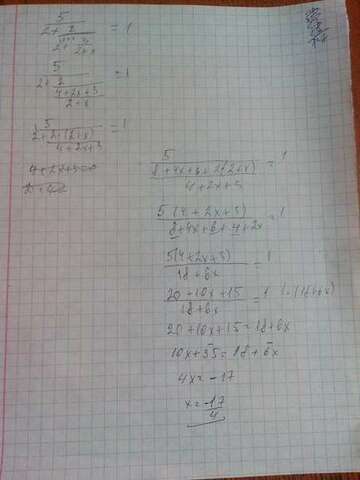 5 / (2 + 2 / (2 + 3 / (2 + x))) = 1
5 / (2 + 2 / ((4 + 2x + 3) / (2 + x))) = 1
5 / (2 + 2·(2+x) / (4 + 2x + 3)) = 1
5 / ((8 + 4x + 6 + 2(2+x)) / (4 + 2x + 3)) = 1
5(4 + 2x + 3) / (8 + 4x + 6 + 4 + 2x) = 1
5(4 + 2x + 3) / (18 + 6x) = 1
(20 + 10x + 15) / (18 + 6x) = 1 | · (18 + 6x)
20 + 10x + 15 = 18 + 6x
10x + 35 = 18 + 6x
4x = - 17
x = -17 / 4